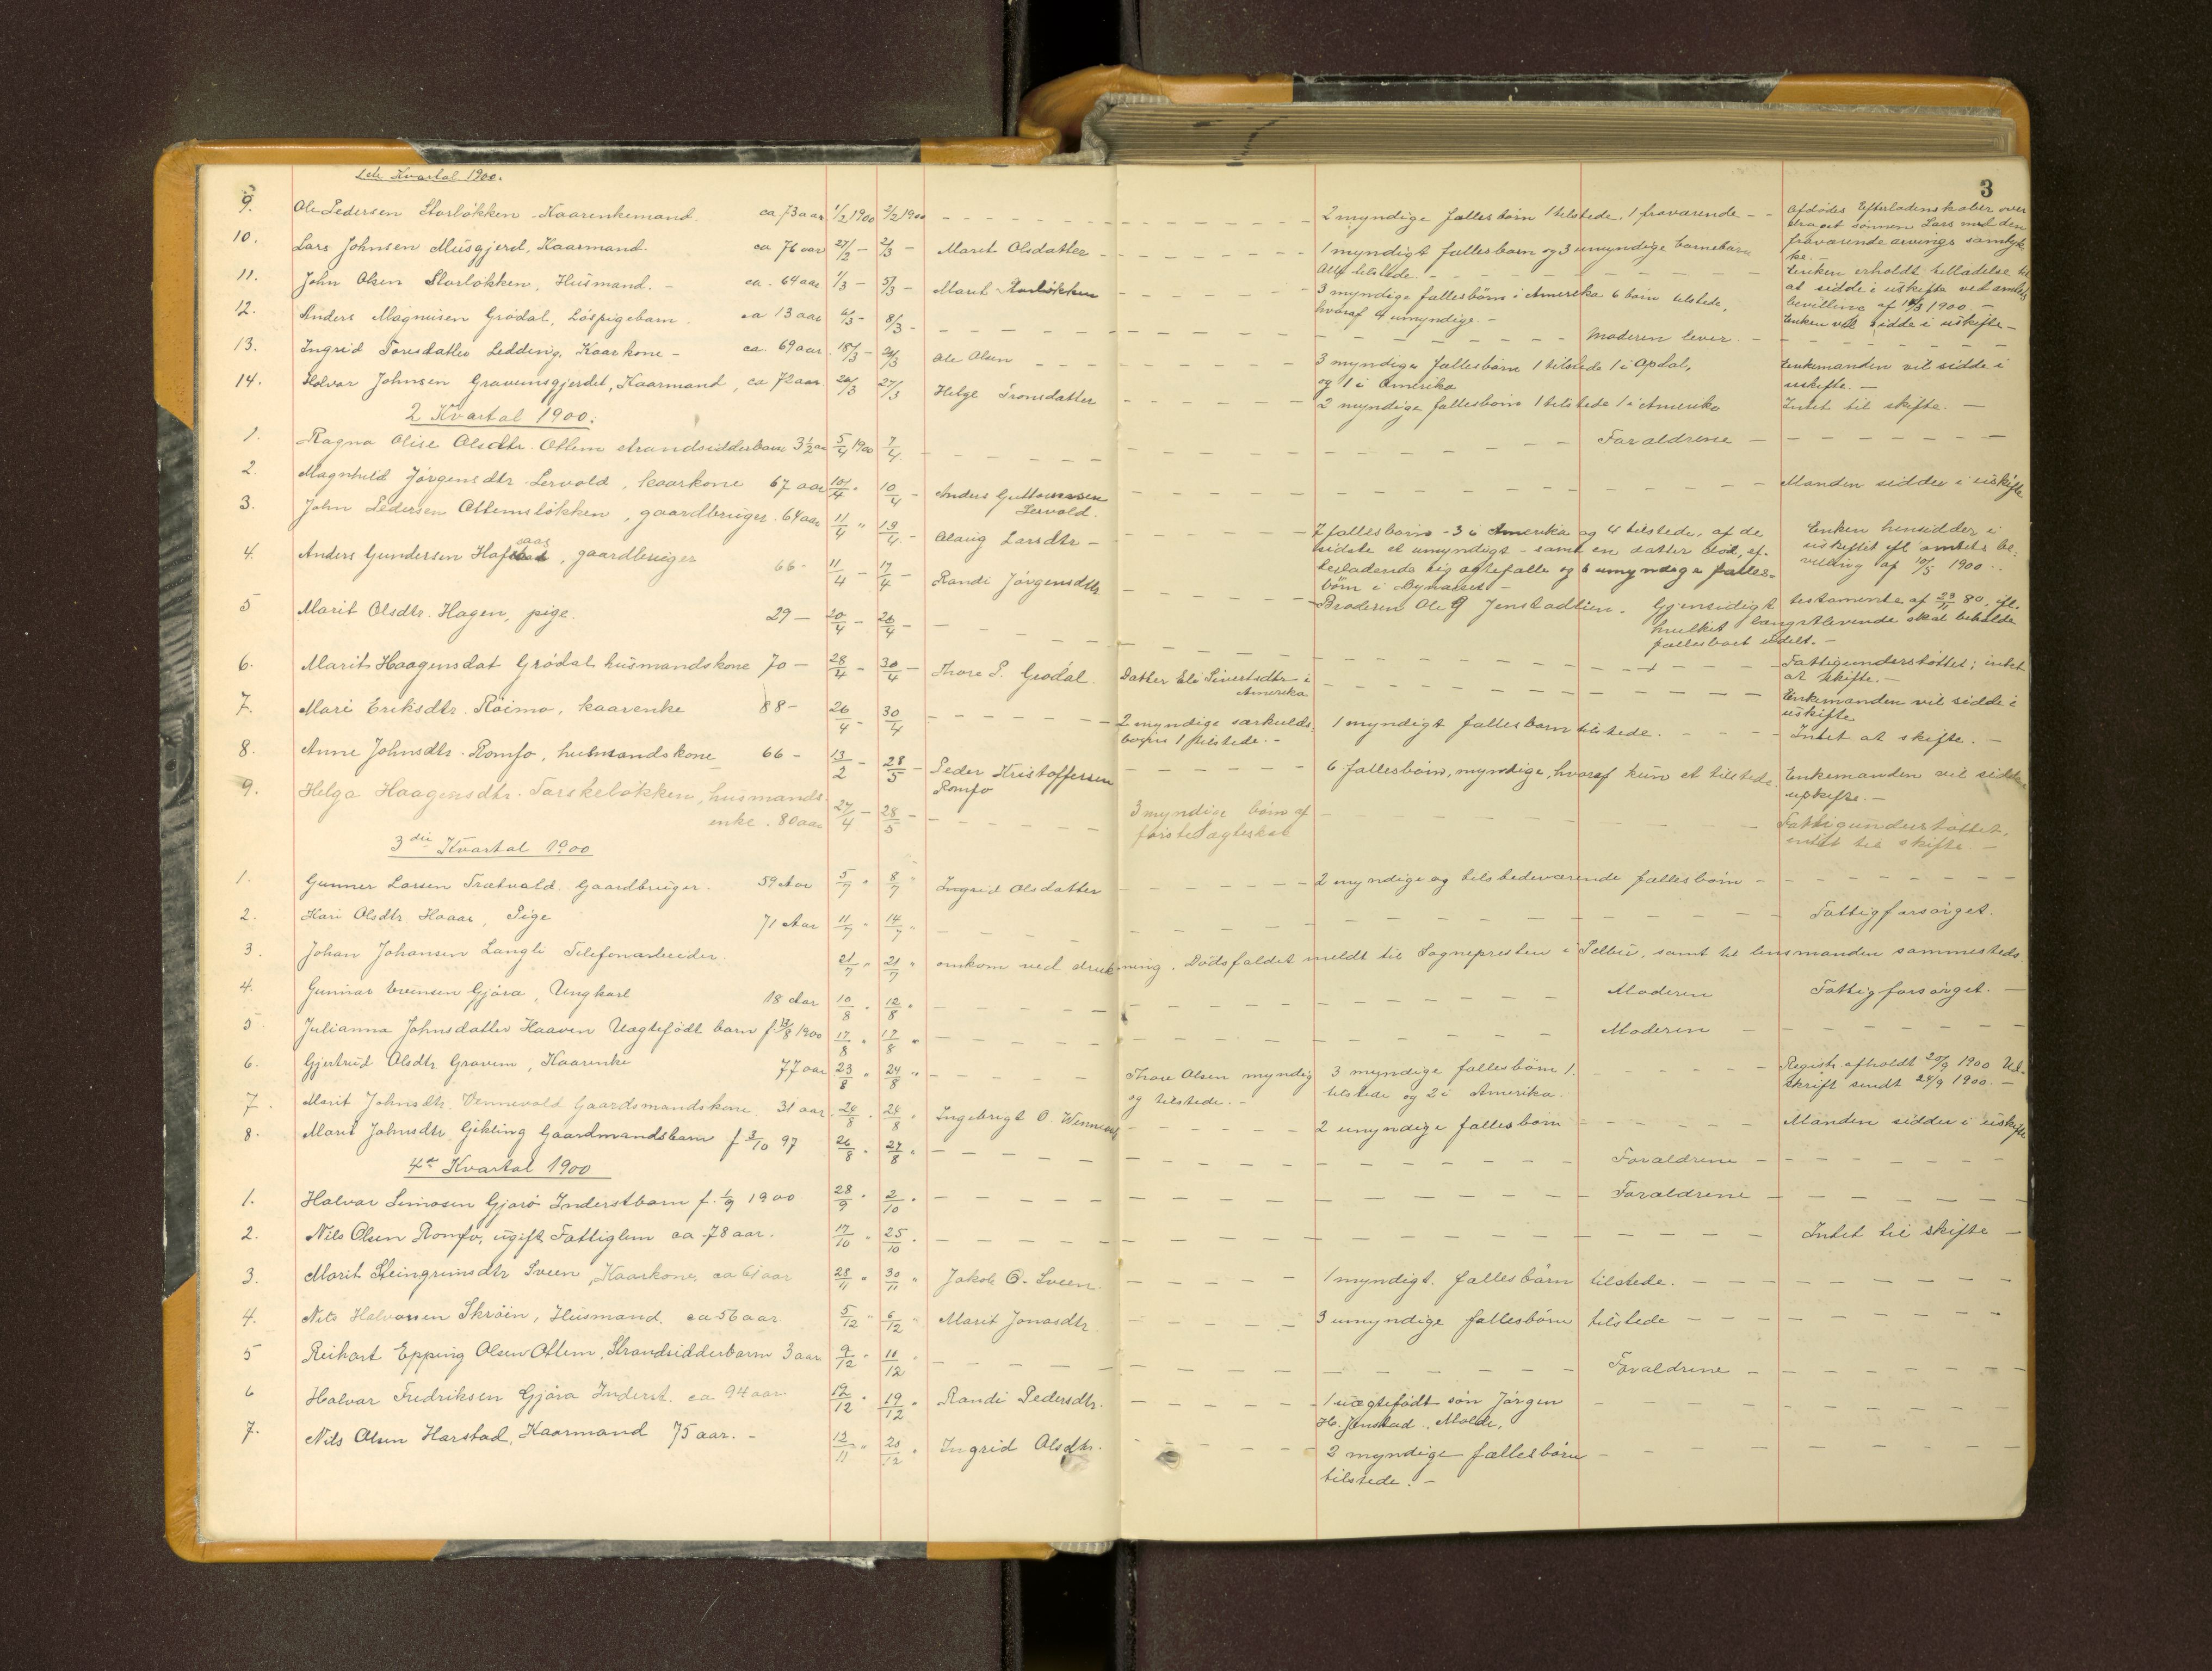 3
1ste Kvartal 1900.
9. Ole Pedersen Storløkken Kaarenkemand. ca 73 aar 1/2 1900 2/2 1900 2 myndige fællesbörn 1 tilstede, 1 fraværende Afdödes Efterladenskaber over
draget sönnen Lars med den
fraværende arvings samtyk
ke.
10. Lars Johnsen Musgjerd, Kaarmand. ca 76 aar 27/2 2/3 Marit Olsdatter 1 myndigt fællesbarn og 3 umyndige barnebörn
alle tilstede. Enken erholdt tilladelse til
at sidde i uskifte ved amtets
bevilling af 14/3 1900
11. John Olsen Storløkken, Husmand. ca. 64 aar 1/3 5/3 Marit Storløkken 3 myndige fællesbörn i Amerika 6 börn tilstede,
hvoraf 4 umyndige. Enken vil sidde i uskifte
12. Anders Magnusen Grödal, Löspigebarn. ca 13 aar 6/3 8/3 Moderen lever.
13. Ingrid Toresdatter Ledding, Kaarkone ca. 69 aar 18/3 24/3 Ole Olsen 3 myndige fællesbörn 1 tilstede 1 i Opdal,
og 1 i Amerika Enkemanden vil sidde i
uskifte.
14. Halvar Johnsen Gravemsgjerdet, Kaarmand, ca 72 aar 24/3 27/3 Helge Tronsdatter 2 myndige fællesbörn 1 tilstede 1 i Amerika Intet til skifte.
2 Kvartal 1900.
1. Ragna Olise Olsdtr. Ottem strandsidderbarn 3 1/2 aar 5/4 1900 7/4 Forældrene
2. Magnhild Jörgensdtr Lervold, kaarkone 67 aar 10/4 10/4 Anders Guttormsen
Lervold. Manden sidder i uskifte
3. John Pedersen Ottemslökken, gaardbruger. 64 aar 11/4 19/4 Olaug Larsdtr 7 fællesbörn - 3 i Amerika og 4 tilstede, af de
sidste et umyndigt - samt en datter död, ef-
terladende sig ægtefælle og 6 umyndige fælles-
börn i Bynæset Enken hensidder i
uskiftet efl amtets be-
villing af 10/5 1900.
4. Anders Gundersen Hafsaas, gaardbruger 66 11/4 17/4 Randi Jörgensdtr Broderen Ole G Jenstadlien. Gjensidigt testamente af 23/11 80, ifl.
hvilket længstlevende skal beholde
fællesboet udelt.
5 Marit Olsdtr. Hagen, pige. 29 20/4 26/4 Fattigunderstöttet; intet
at skifte.
6. Marit Haagensdat Grödal husmandskone 70 28/4 30/4 Thore P. Grödal. Datter Eli Sivertsdtr i
Amerika Enkemanden vil sidde i
uskifte
7. Mari Eriksdtr. Röimo, kaarenke 88 26/4 30/4 2 myndige særkulds-
börn 1 tilstede. 1 myndigt fællesbarn tilstede. Intet at skifte.
8. Anne Johnsdtr. Romfo, husmandskone 66 13/2 28/5 Peder Kristoffersen
Romfo 6 fællesbörn, myndige, hvoraf kun et tilstede. Enkemanden vil sidde
uskifte.
9. Helga Haagensdtr. Torskelökken, husmands-
enke. 80 aar 27/4 28/5 3 myndige börn af
første ægteskab Fattigunderstöttet,
intet til skifte.
3die Kvartal 1900
1. Gunner Larsen Trætvald. Gaardbruger. 59 Aar 5/7 8/7 Ingrid Olsdatter 2 myndige og tilstedeværende fællesbörn
2. Kari Olsdtr Haaar, Pige 71 Aar 11/7 14/7 Fattigforsörget.
3. Johan Johansen Langli Telefonarbeider. 21/7 21/7 omkom ved drukning. Dödsfaldet meldt til Sognepresten i Selbu, samt til lensmanden sammesteds
4. Gunnar Evensen Gjöra, Ungkarl 18 Aar 10/8 12/8 Moderen Fattigforsörget.
5 Julianna Johnsdatter Haaven Uægtefödt barn f. 13/8 1900 17/8 17/8 Moderen
6. Gjertrud Olsdtr Gravem, Kaarenke 77 aar 23/8 24/8 Thore Olsen myndig
og tilstede. 3 myndige fællesbörn 1
tilstede og 2 i Amerika. Registr. afholdt 20/9 1900 Ud-
skrift sendt 24/9 1900.
7. Marit Johnsdtr. Vennevold Gaardsmandskone. 31 aar 24/8 24/8 Ingebrigt O. Wennevold 2 umyndige fællesbörn Manden sidder i uskifte
8. Marit Johnsdtr Gikling Gaardmandsbarn f 3/10 97 26/8 27/8 Forældrene
4de Kvartal 1900
1. Halvar Simosen Gjörö Inderstbarn f. 1/9 1900 28/9 2/10 Forældrene
2. Nils Olsen Romfo, ugift Fattiglem ca. 78 aar. 17/10 25/10 Intet til skifte
3. Marit Steingrimsdtr Sveen, Kaarkone, ca 61 aar 28/11 30/11 Jakob O. Sveen. 1 myndigt. fællesbarn tilstede.
4. Nils Halvorsen Skröin, Husmand. ca 56 aar 5/12 6/12 Marit Jonasdtr. 3 umyndige fællesbörn tilstede
5 Reihart Epping Olsen Ottem, Strandsidderbarn 3 aar 9/12 11/12 Forældrene
6 Halvar Fredriksen Gjöra Inderst. ca 94 aar. 12/12 19/12 Randi Pedersdtr. 1 uægtefödt sön Jörgen
H. Jenstad. Molde.
7. Nils Olsen Harstad, Kaarmand 75 aar. 12/11 20/12 Ingrid Olsdtr. 2 myndige fællesbörn
tilstede.